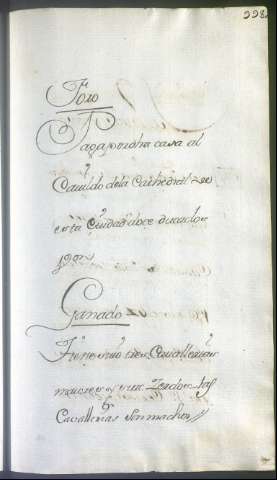 998
Foro
Paga por dha casa al
Cauildo dela Cathedral de
esta Ciudad doce ducados
Ganado
Tiene tres Cavallerias
maiores y un Zerdo las
Cavallerias son machos